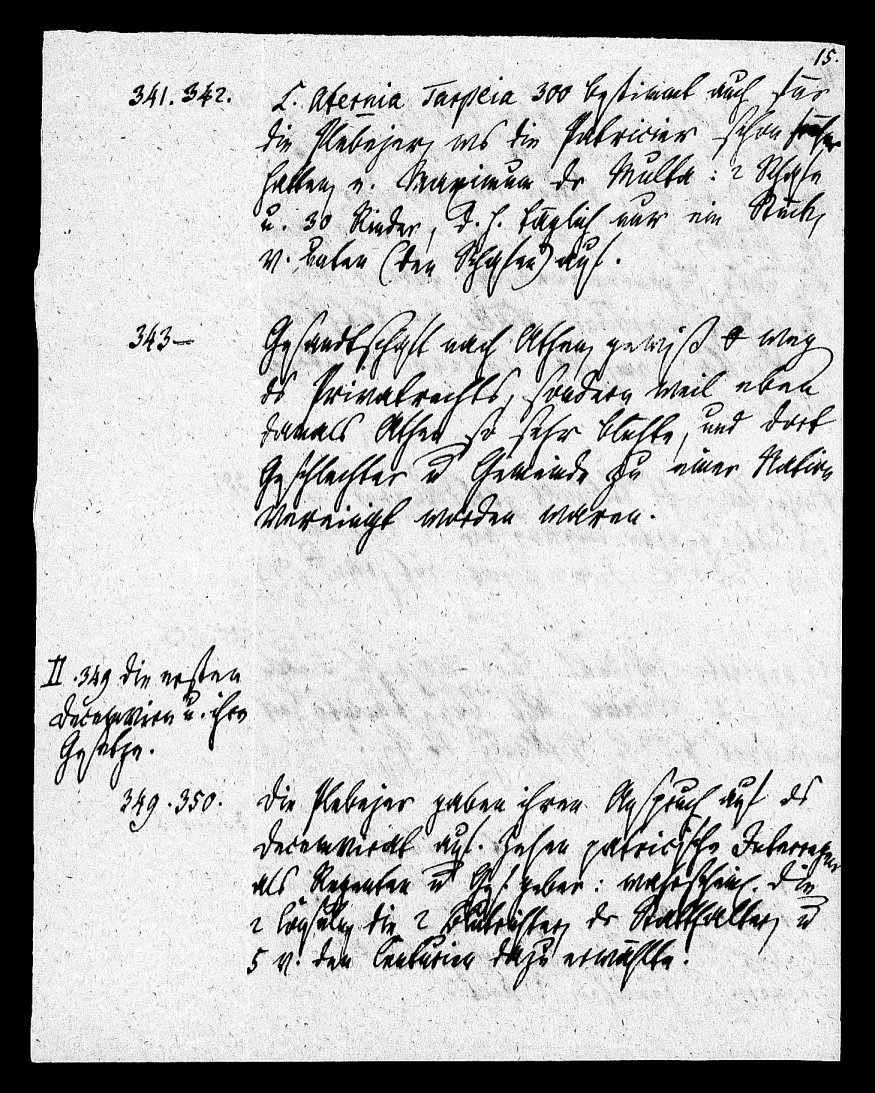 15.
341. 342. L. Aternia Tarpeia 300 bestimmt auch für
die Plebejer, was die Patricier schon früher
hatten, e. Maximum der Multa: 2 Schafe
u. 30 Rinder, d. h. täglich nur ein Stück,
v. unten (den Schafen) auf.
343— Gesandtschaft nach Athen, gewiß weg
des Privatrechts, sondern weil eben
damals Athen so sehr blühte, und dort
Geschlechter u Gemeinde zu einer Nation
vereinigt worden waren.
II. 349 die ersten
Decemvirn u. ihre
Gesetze.
349. 350. Die Plebejer gaben ihren Anspruch auf das
Decemvirat auf. Zehen patricische Interreges
als Regenten u Gesetzgeber: wahrscheinl. die
2 Consuln, die 2 Blutrichter, der Statthalter, u
5 v. den Centurien dazu erwählte.